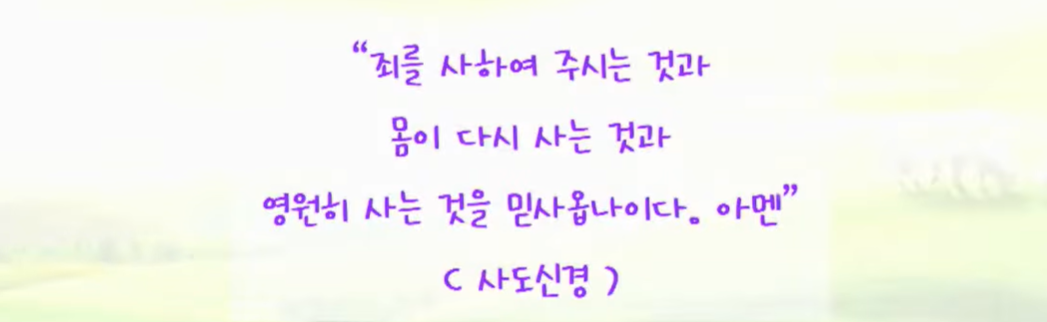 “죄를 사하여 주시는 것과
몸이 다시 사는 것과
영원히 사는 것을 믿사옵나이다. 아멘”
( 사도신경 )